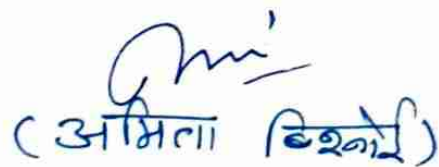 (अमिता बिश्नोई)